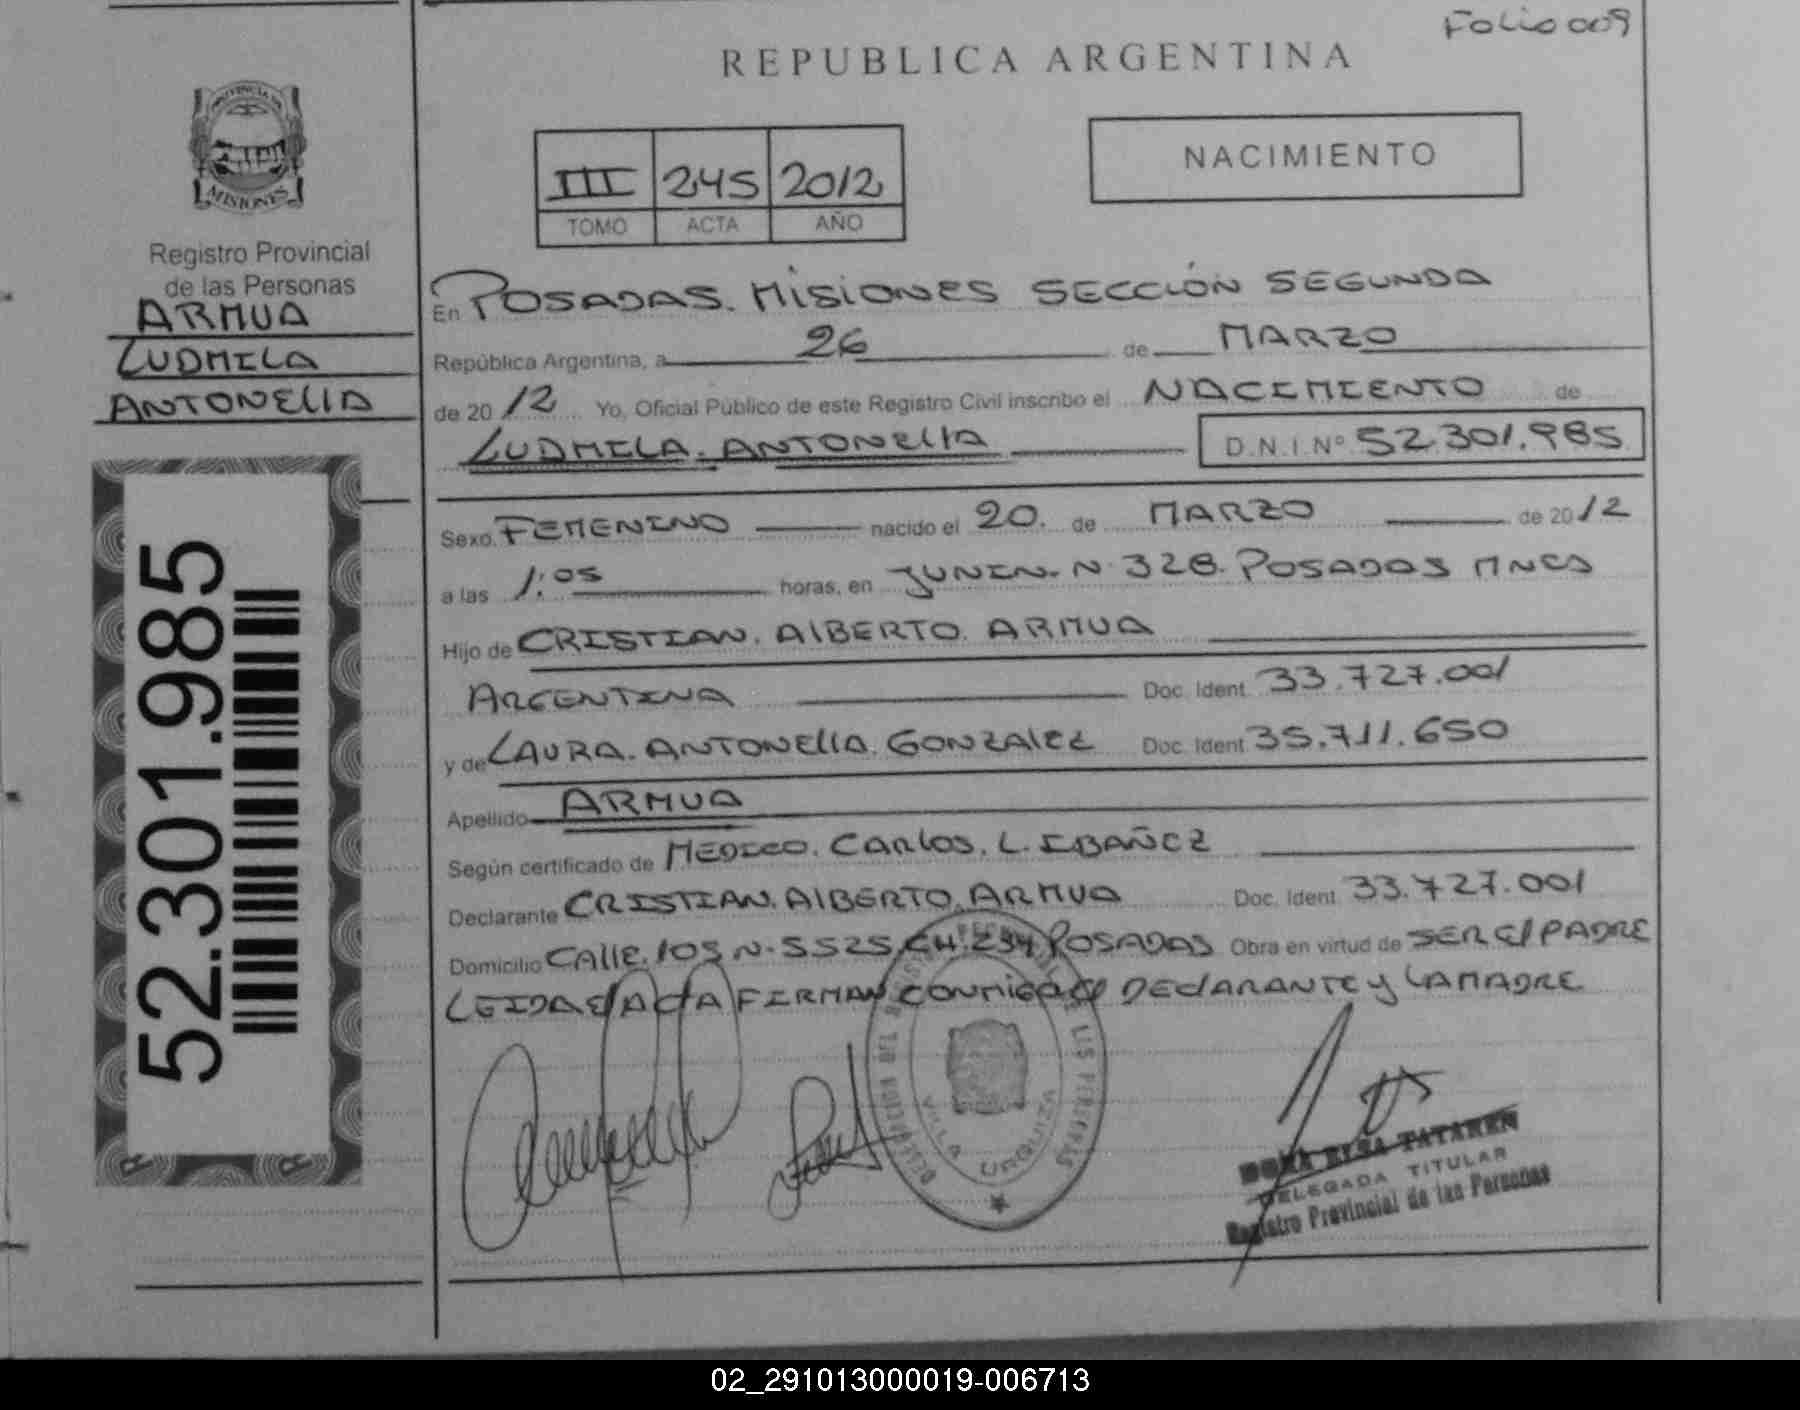 Folio 009
REPUBLICA ARGENTINA
NACIMIENTO
III 245 2012
TOMO ACTA AÑO
PROVINCIA DE
MISIONES
Registro Provincial
de las Personas
ARMUA
LUDMILA
ANTONELLA
52.301.985
En POSADAS. MISIONES SECCIÓN SEGUNDA
República Argentina, a 26 de MARZO
de 2012 Yo, Oficial Público de este Registro Civil inscribo el NACIMIENTO de
LUDMILA. ANTONELLA D.N.I. Nº 52.301.985
Sexo FEMENINO nacido el 20. de MARZO de 2012
a las 1:05 horas, en JUNIN. N. 328. POSADAS MNES
Hijo de CRISTIAN. ALBERTO. ARMUA
ARGENTINA Doc. Ident. 33.727.001
y de LAURA. ANTONELLA. GONZALEZ Doc. Ident. 35.711.650
Apellido ARMUA
Según certificado de MEDICO. CARLOS. L. IBAÑEZ
Declarante CRISTIAN. ALBERTO. ARMUA Doc. Ident. 33.727.001
Domicilio CALLE. 105. N. 5525. CH. 234. POSADAS Obra en virtud de SER EL PADRE
LEIDA EL ACTA FIRMAN CONMIGO EL DECLARANTE Y LA MADRE
VILLA URQUIZA
TATAREN
DELEGADA TITULAR
Registro Provincial de las Personas
02_291013000019-006713